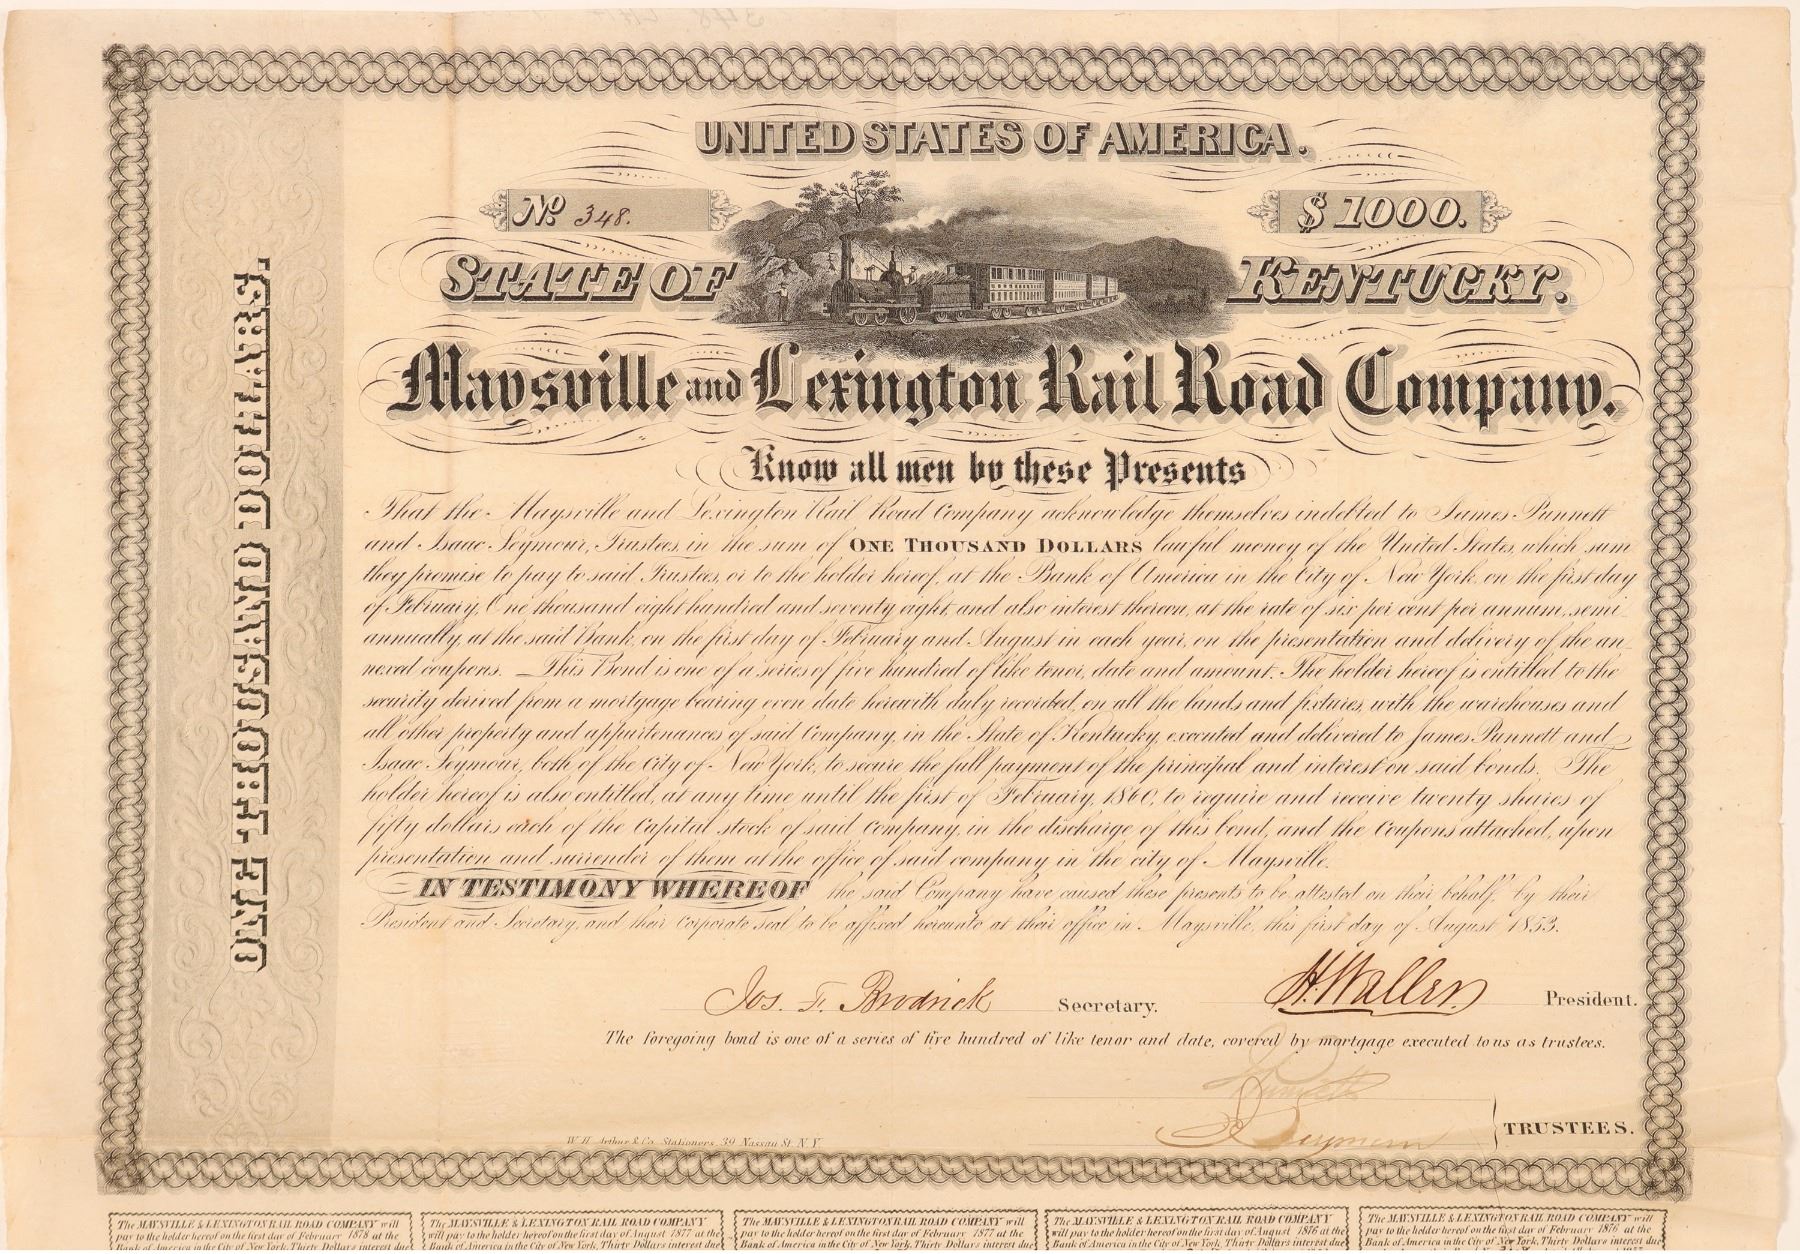 UNITED STATES OF AMERICA.
No. 348.
$ 1000.
STATE OF KENTUCKY.
Maysville and Lexington Rail Road Company.
Know all men by these Presents
That the Maysville and Lexington Rail Road Company acknowledge themselves indebted to James Punnett
and Isaac Seymour, Trustees, in the sum of ONE THOUSAND DOLLARS lawful money of the United States, which sum
they promise to pay to said Trustees, or to the holder hereof, at the Bank of America in the City of New York, on the first day
of February, One thousand eight hundred and seventy eight, and also interest thereon, at the rate of six per cent per annum, semi
annually, at the said Bank, on the first day of February and August in each year, on the presentation and delivery of the an-
nexed coupons. This Bond is one of a series of five hundred of like tenor, date and amount. The holder hereof is entitled to the
security derived from a mortgage bearing even date herewith duly recorded, on all the lands and fixtures, with the warehouses and
all other property and appurtenances of said Company, in the State of Kentucky, executed and delivered to James Punnett and
Isaac Seymour, both of the City of New York, to secure the full payment of the principal and interest on said bonds. The
holder hereof is also entitled, at any time until the first of February, 1860, to require and receive twenty shares of
fifty dollars each of the Capital stock of said Company, in the discharge of this bond, and the Coupons attached, upon
presentation and surrender of them at the office of said company in the city of Maysville.
IN TESTIMONY WHEREOF the said Company have caused these presents to be attested on their behalf, by their
President and Secretary, and their Corporate seal to be affixed hereunto at their office in Maysville, this first day of August 1853.
Jos. F. Brodrick Secretary. H. Waller President.
The foregoing bond is one of a series of five hundred of like tenor and date, covered by mortgage executed to us as trustees.
J Punnett
I Seymour
TRUSTEES.
W. H. Arthur & Co. Stationers, 39 Nassau St. N. Y.
ONE THOUSAND DOLLARS.
The MAYSVILLE & LEXINGTON RAIL ROAD COMPANY will
pay to the holder hereof on the first day of February 1878 at the
Bank of America in the City of New York, Thirty Dollars interest due
The MAYSVILLE & LEXINGTON RAIL ROAD COMPANY
will pay to the holder hereof on the first day of August 1877 at the
Bank of America in the City of New York, Thirty Dollars interest due
The MAYSVILLE & LEXINGTON RAIL ROAD COMPANY will
pay to the holder hereof on the first day of February 1877 at the
Bank of America in the City of New York, Thirty Dollars interest due
The MAYSVILLE & LEXINGTON RAIL ROAD COMPANY
will pay to the holder hereof on the first day of August 1876 at the
Bank of America in the City of New York, Thirty Dollars interest due
The MAYSVILLE & LEXINGTON RAIL ROAD COMPANY will
pay to the holder hereof on the first day of February 1876 at the
Bank of America in the City of New York, Thirty Dollars interest due